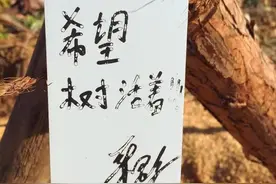 希望
树活着!!